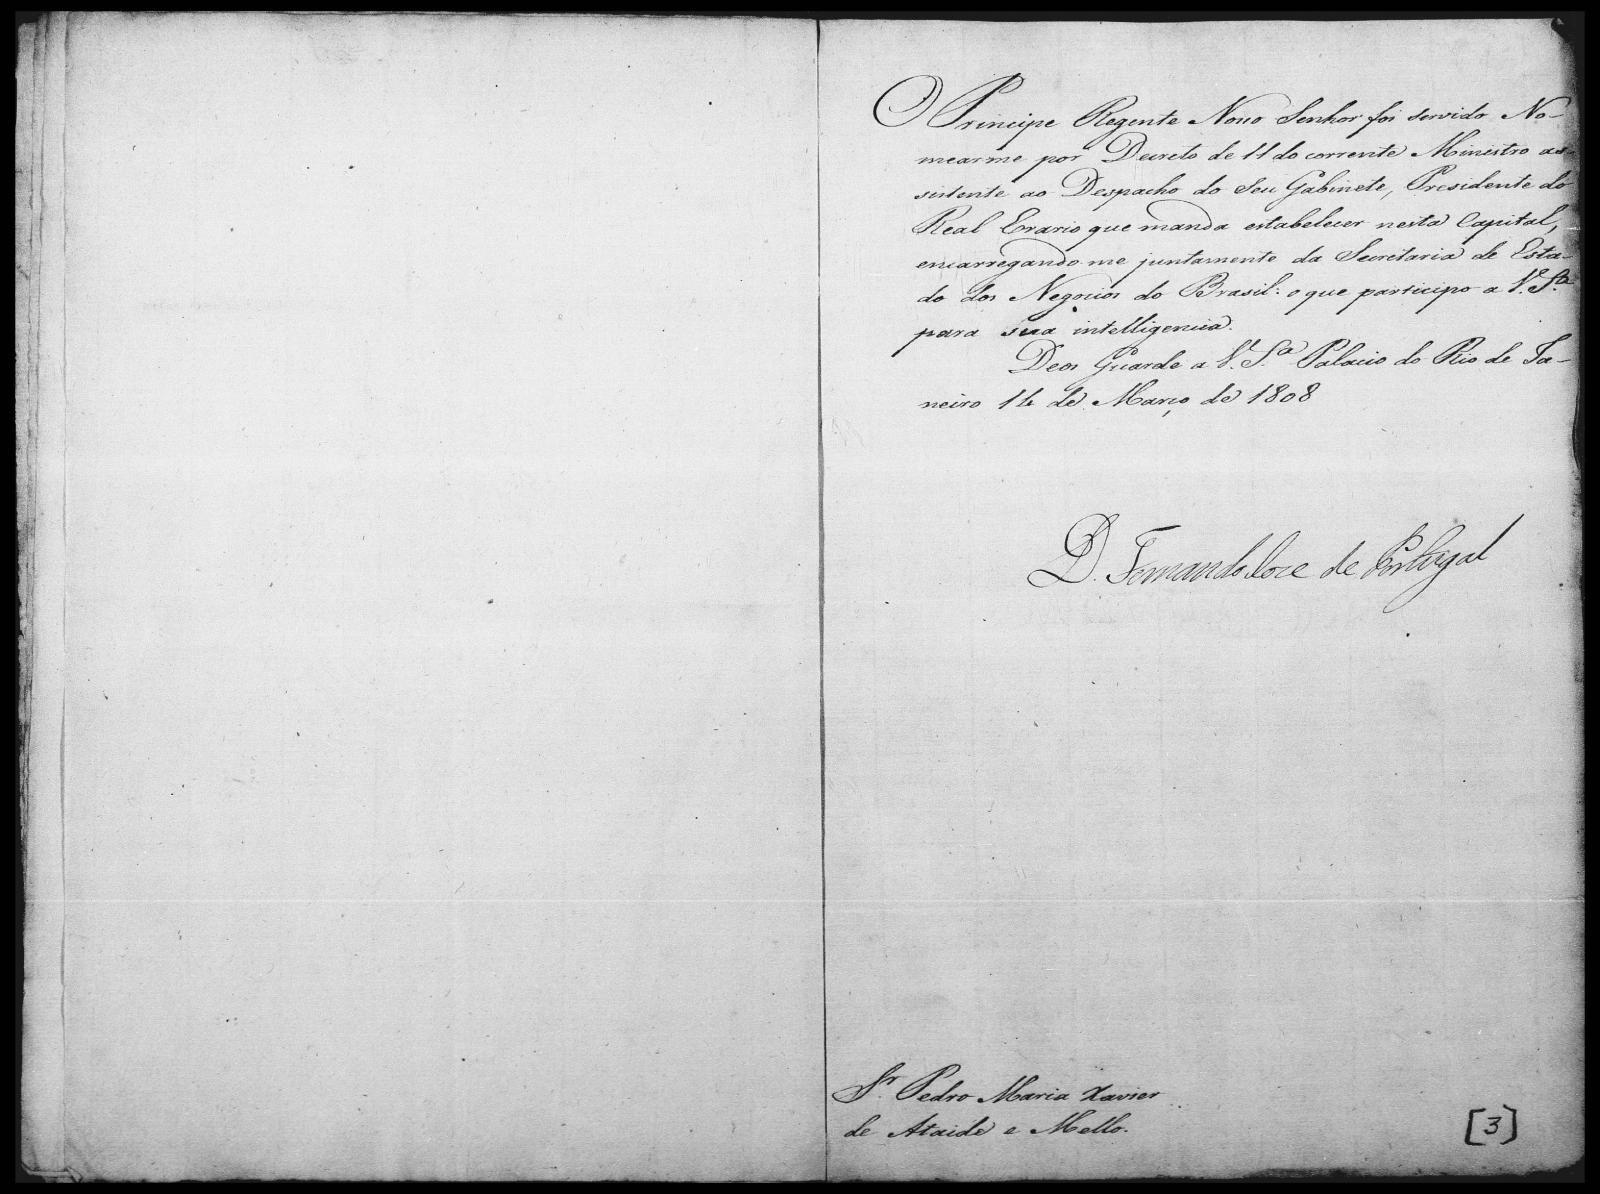 O Principe Regente Nosso Senhor foi servido No-
mearme por Decreto de 11 do corrente Ministro as-
sistente ao Despacho do Seu Gabinete, Presidente do
Real Erario que manda estabelecer nesta Capital,
encarregando-me juntamente da Secretaria de Esta-
do dos Negocios do Brasil: o que participo a V. S.ª
para sua intelligencia.
Deos Guarde a V. S.ª Palacio do Rio de Ja-
neiro 14 de Março de 1808
D. Fernando Jose de Portugal
Sr. Pedro Maria Xavier
de Ataide e Mello.
[3]